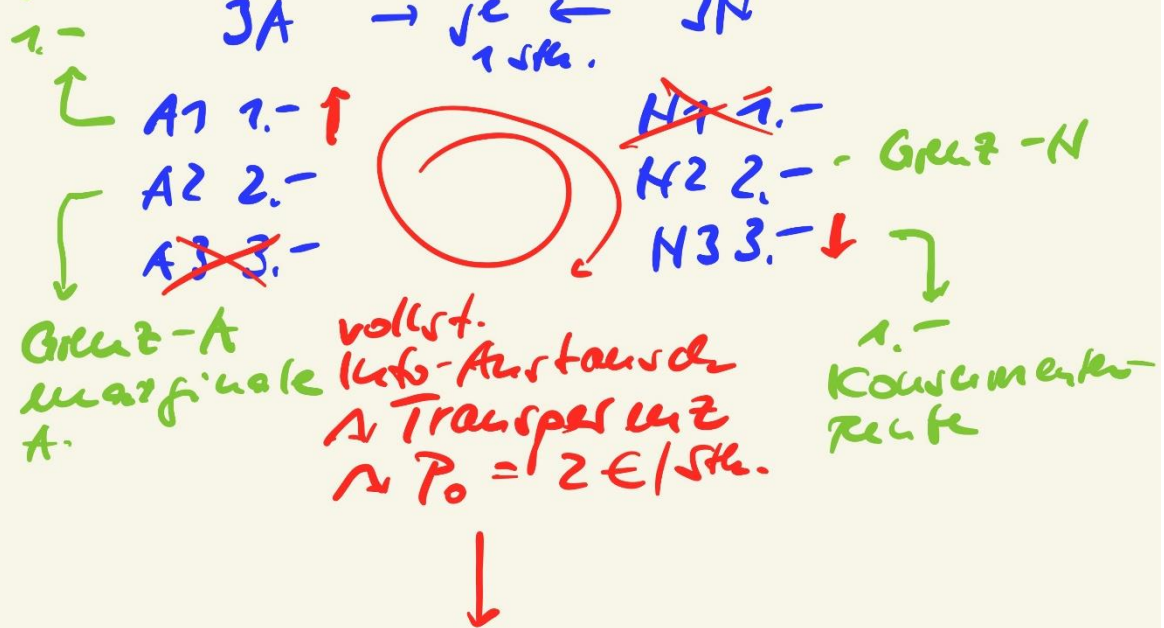 1.-
3A → je ← 3N
1 Stk.
A1 1.-
A2 2.-
A3 3.-
N1 1.-
N2 2.- - Grenz-N
N3 3.-
Grenz-A
marginale
A.
vollst.
Info-Austausch
Transparenz
P₀ = 2 €/Stk.
1.-
Konsumenten-
rente